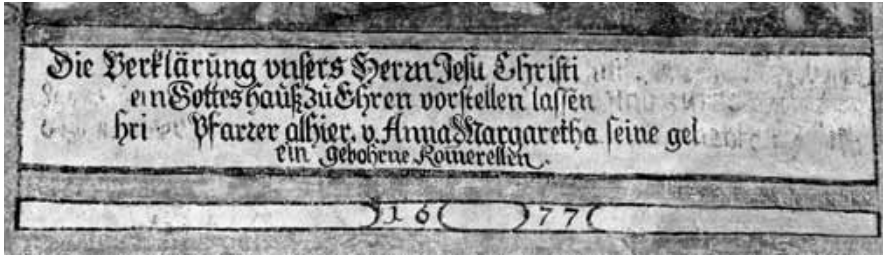 Die Verklärung vnsers Herrn Jesu Christi
ein Gotteshauß zu Ehren vorstellen lassen
hri Pfarrer alhier, v. Anna Margaretha seine gel
ein gebohrne Romerellen.
16 77